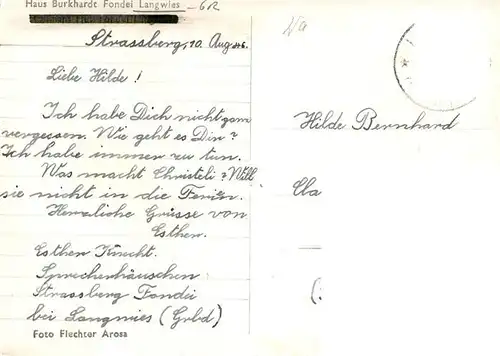 Haus Burkhardt Fondei Langwies - GR
Strassberg, 10. Aug. 46.
Liebe Hilde!
Ich habe Dich nicht ganz
vergessen. Wie geht es Dir?
Ich habe immer zu tun.
Was macht Christeli? Will
sie nicht in die Ferien.
Herzliche Grüsse von
Esther.
Esther Knecht.
Sprecherhäuschen
Strassberg Fondei
bei Langwies (Grbd)
Foto Flechter Arosa
Hilde Bernhard